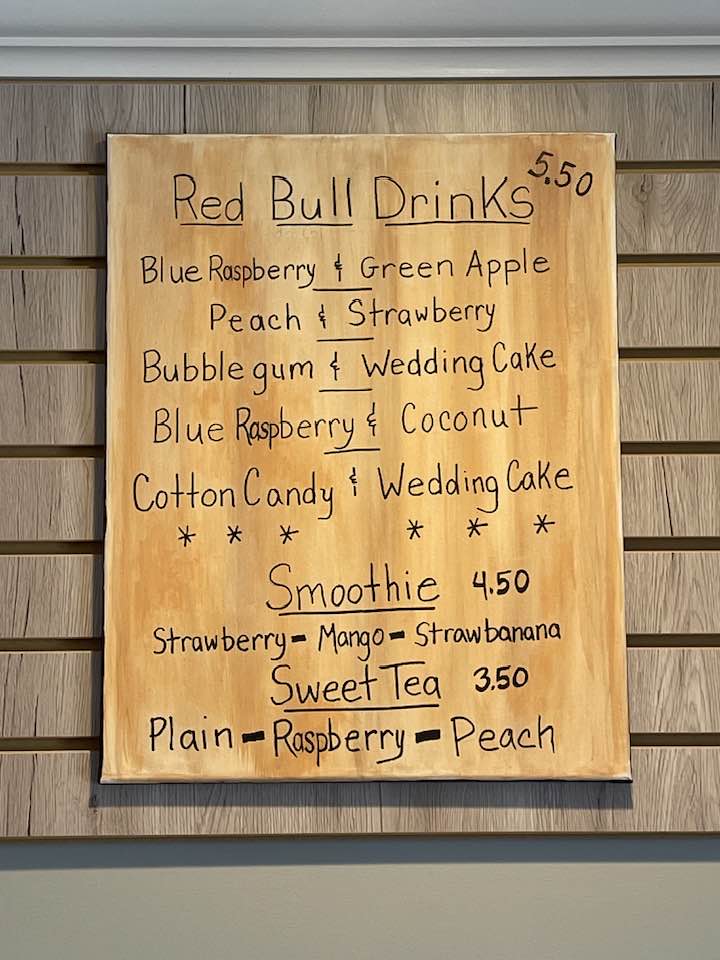 Red Bull Drinks 5.50
Blue Raspberry & Green Apple
Peach & Strawberry
Bubble gum & Wedding Cake
Blue Raspberry & Coconut
Cotton Candy & Wedding Cake
* * * * * *
Smoothie 4.50
Strawberry - Mango - Strawbanana
Sweet Tea 3.50
Plain - Raspberry - Peach